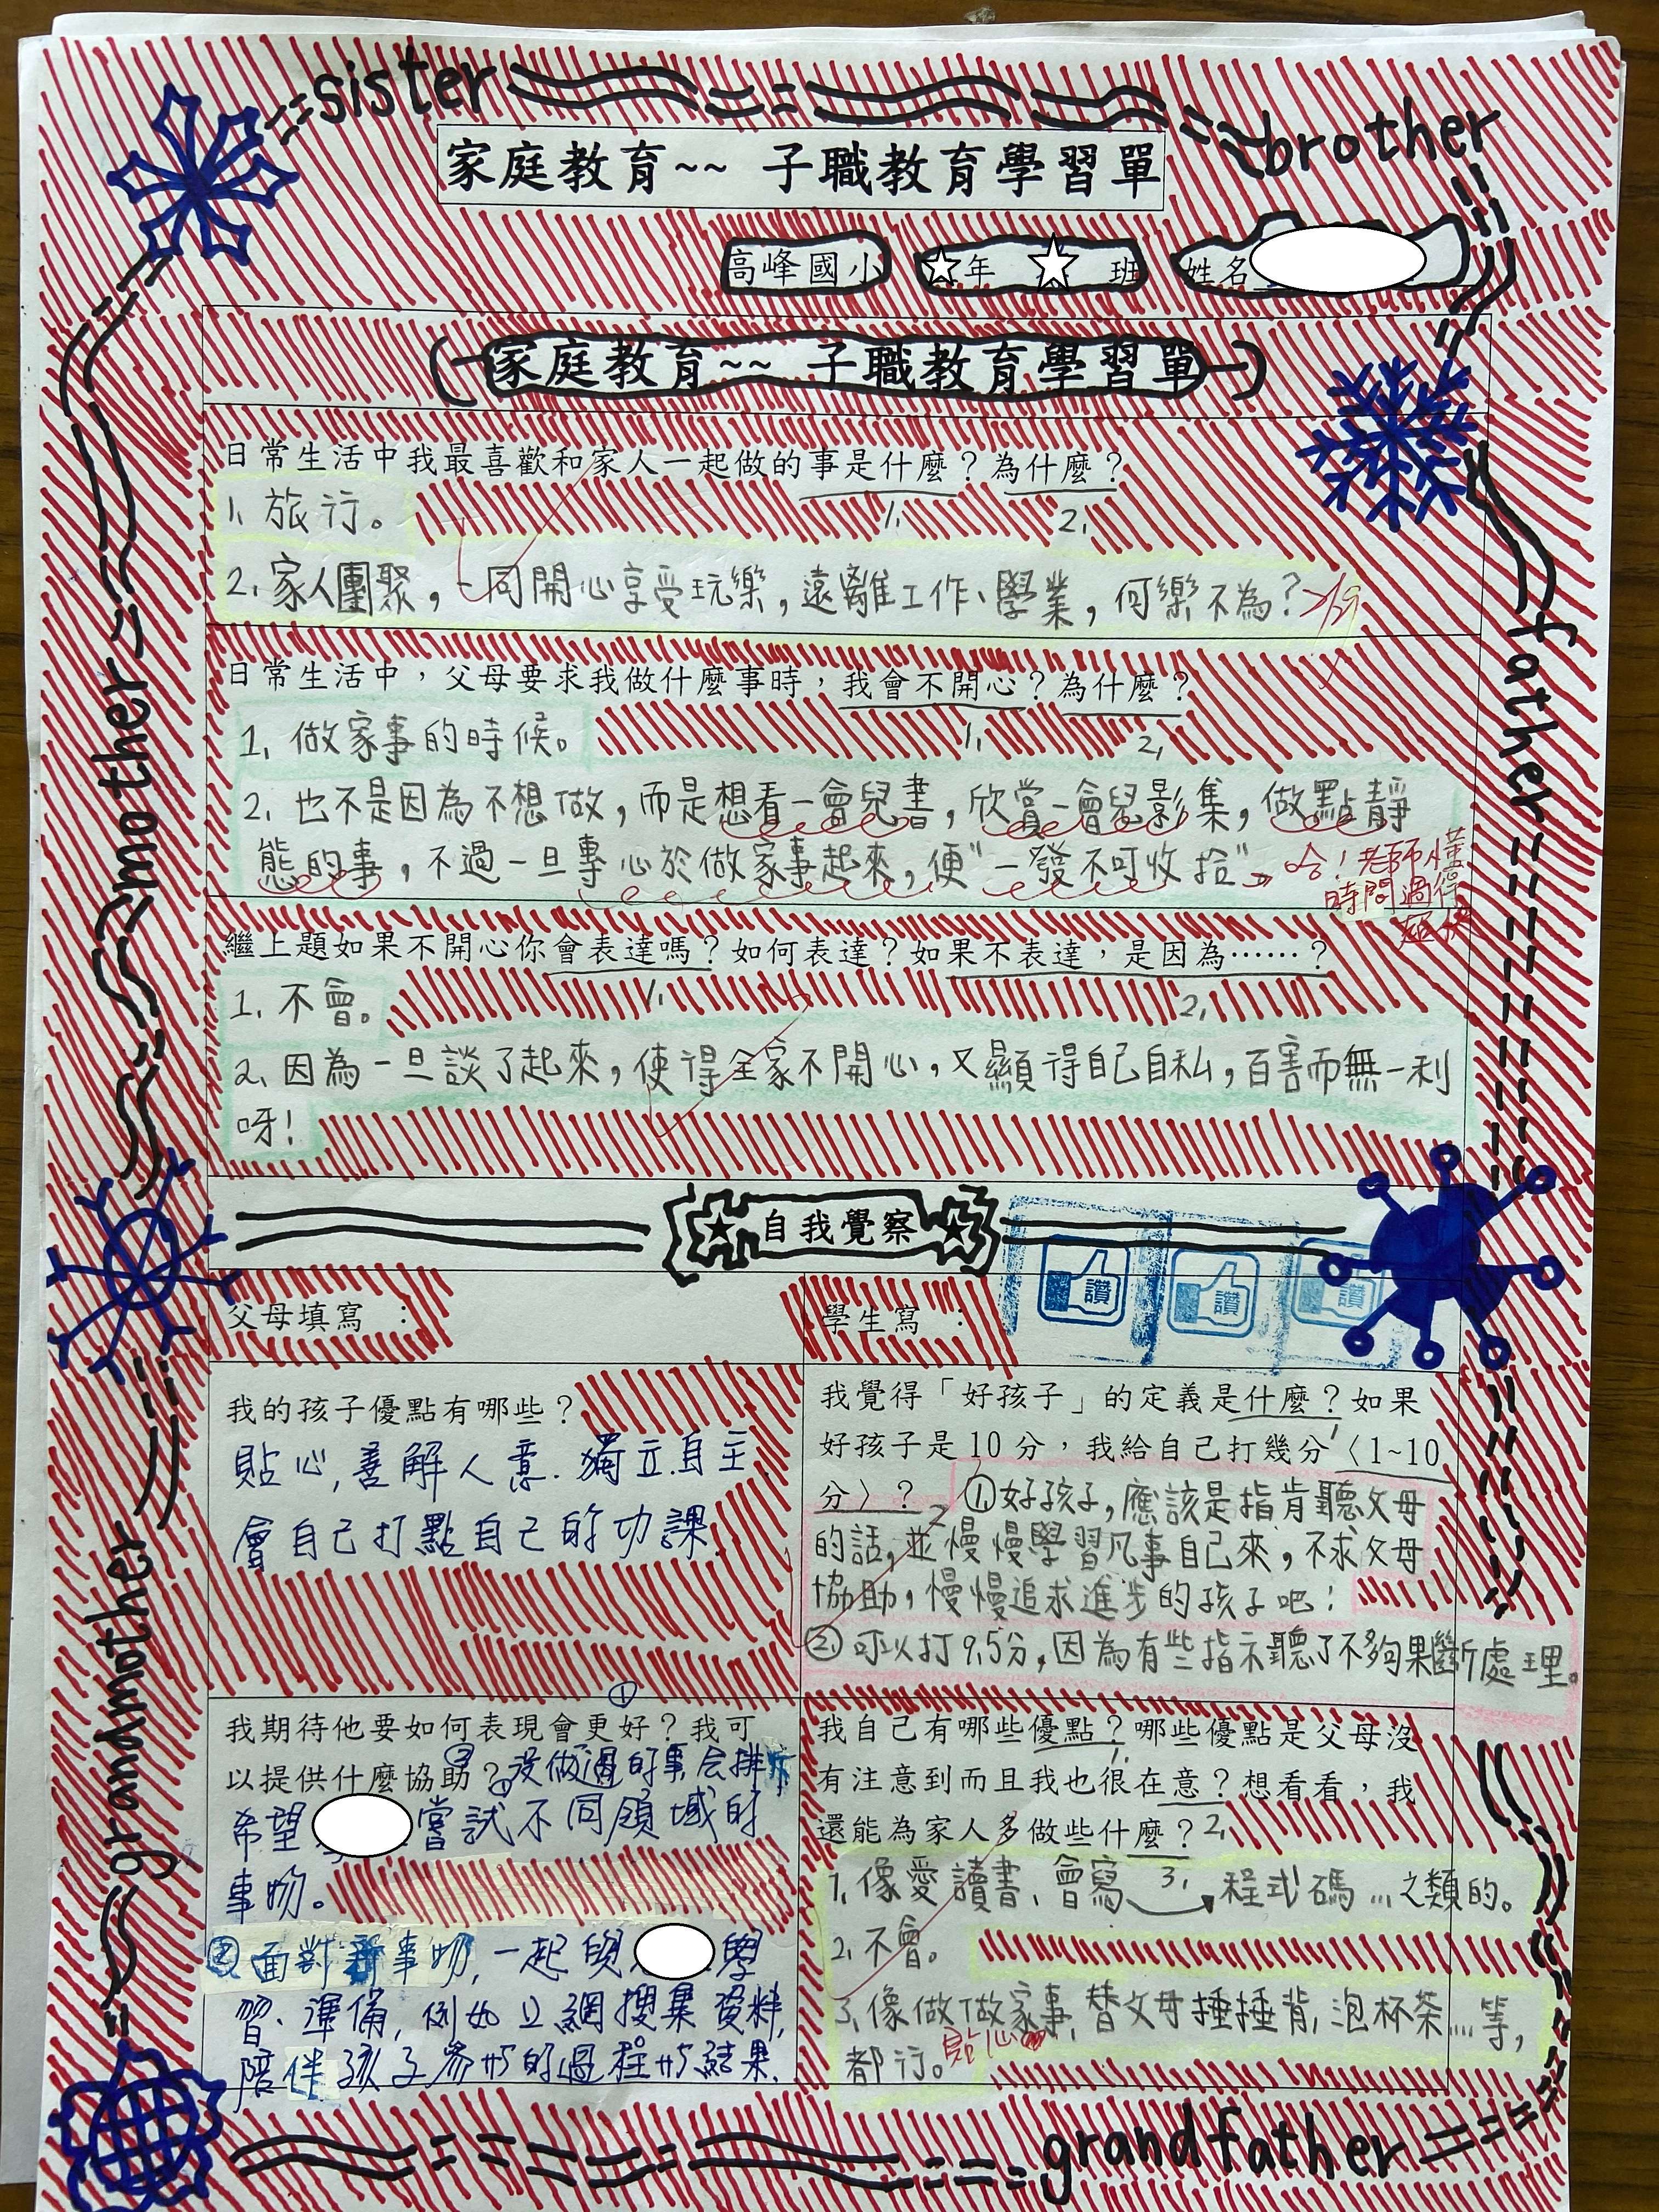 sister
brother
家庭教育~~ 子職教育學習單
高峰國小 年 班 姓名
家庭教育~~ 子職教育學習單
日常生活中我最喜歡和家人一起做的事是什麼？為什麼？
1. 2.
1. 旅行。
2. 家人團聚，一同開心享受玩樂，遠離工作、學業，何樂不為？
日常生活中，父母要求我做什麼事時，我會不開心？為什麼？
1. 2.
1. 做家事的時候。
2. 也不是因為不想做，而是想看一會兒書，欣賞一會兒影集，做點靜
態的事，不過一旦專心於做家事起來，便"一發不可收拾"
哈！老師懂
時間過得
超快
繼上題如果不開心你會表達嗎？如何表達？如果不表達，是因為……？
1. 2.
1. 不會。
2. 因為一旦談了起來，使得全家不開心，又顯得自己自私，百害而無一利
呀！
自我覺察
讚 讚 讚
父母填寫 ：
學生寫 ：
我的孩子優點有哪些？
貼心,善解人意.獨立.自主.
會自己打點自己的功課.
我覺得「好孩子」的定義是什麼？如果
好孩子是 10 分，我給自己打幾分〈1~10
分〉？ ①好孩子，應該是指肯聽父母
的話，並慢慢學習凡事自己來，不求父母
協助，慢慢追求進步的孩子吧！
② 可以打9.5分，因為有些指示聽了不夠果斷處理。
我期待他要如何表現會更好？我可
以提供什麼協助？沒做過的事會排斥
希望 嘗試不同領域的
事物。
② 面對新事物,一起與 學
習.準備,例如上網搜集資料,
陪伴孩子參與的過程與結果.
我自己有哪些優點？哪些優點是父母沒
有注意到而且我也很在意？想看看，我
還能為家人多做些什麼？
1. 2. 3.
1. 像愛讀書、會寫 程式碼…之類的。
2. 不會。
3. 像做做家事,替父母捶捶背,泡杯茶…等，
都行。 貼心
mother
grandmother
father
grandfather